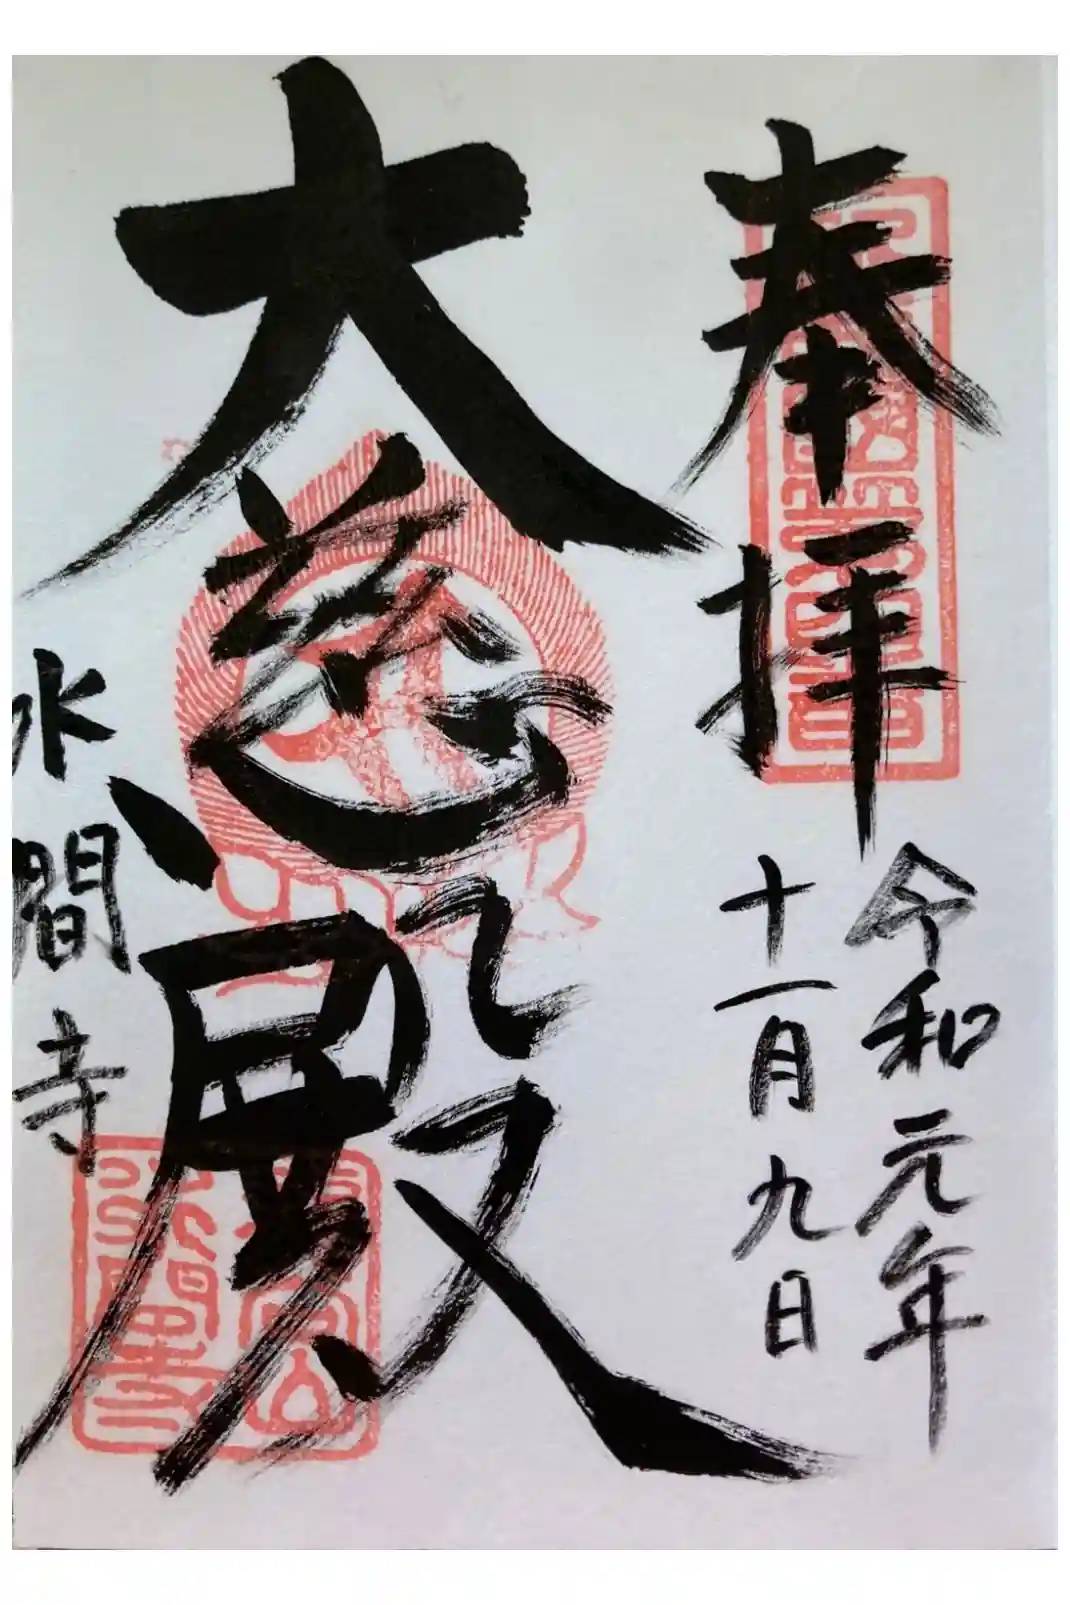 奉拝
令和元年
十一月九日
大慈殿
水間寺